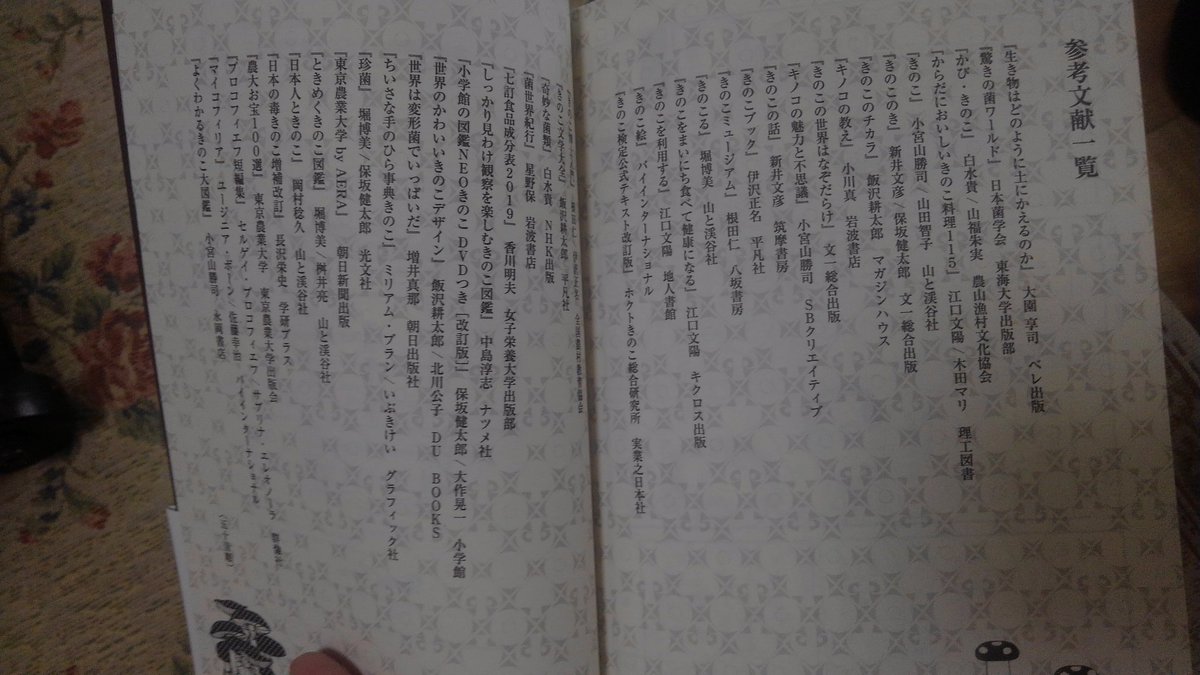 参考文献一覧
『生き物はどのように土にかえるのか』 大園享司 ベレ出版
『驚きの菌ワールド』 日本菌学会 東海大学出版部
『かび・きのこ』 白水貴＼山福朱実 農山漁村文化協会
『からだにおいしいきのこ料理115』 江口文陽＼木田マリ 理工図書
『きのこ』 小宮山勝司／山田智子 山と渓谷社
『きのこのき』 新井文彦／保坂健太郎 文一総合出版
『きのこのチカラ』 飯沢耕太郎 マガジンハウス
『キノコの教え』 小川真 岩波書店
『きのこの世界はなぞだらけ』 文一総合出版
『キノコの魅力と不思議』 小宮山勝司 SBクリエイティブ
『きのこの話』 新井文彦 筑摩書房
『きのこブック』 伊沢正名 平凡社
『きのこミュージアム』 根田仁 八坂書房
『きのこる』 堀博美 山と渓谷社
『きのこをまいにち食べて健康になる』 江口文陽 キクロス出版
『きのこを利用する』 江口文陽 地人書館
『きのこ絵』 パイインターナショナル
『きのこ検定公式テキスト改訂版』 ホクトきのこ総合研究所 実業之日本社
『きのこ文学大全』 飯沢耕太郎 平凡社
『奇妙な菌類』 白水貴 NHK出版
『菌世界紀行』 星野保 岩波書店
『七訂食品成分表2019』 香川明夫 女子栄養大学出版部
『しっかり見わけ観察を楽しむきのこ図鑑』 中島淳志 ナツメ社
『小学館の図鑑NEOきのこ DVDつき［改訂版］』 保坂健太郎／大作晃一 小学館
『世界のかわいいきのこデザイン』 飯沢耕太郎／北川公子 DU BOOKS
『世界は変形菌でいっぱいだ』 増井真那 朝日出版社
『ちいさな手のひら事典きのこ』 ミリアム・ブラン＼いぶきけい グラフィック社
『珍菌』 堀博美／保坂健太郎 光文社
『東京農業大学 by AERA』 朝日新聞出版
『ときめくきのこ図鑑』 堀博美／桝井亮 山と渓谷社
『日本人ときのこ』 岡村稔久 山と渓谷社
『日本の毒きのこ増補改訂』 長沢栄史 学研プラス
『農大お宝100選』 東京農業大学 東京農業大学出版会
『プロコフィエフ短編集』 セルゲイ・プロコフィエフ サブリナ・エレオノーラ 群像社
『マイコフィリア』 ユージニア・ボーン／佐藤幸治 パイインターナショナル
『よくわかるきのこ大図鑑』 小宮山勝司 永岡書店
（五十音順）